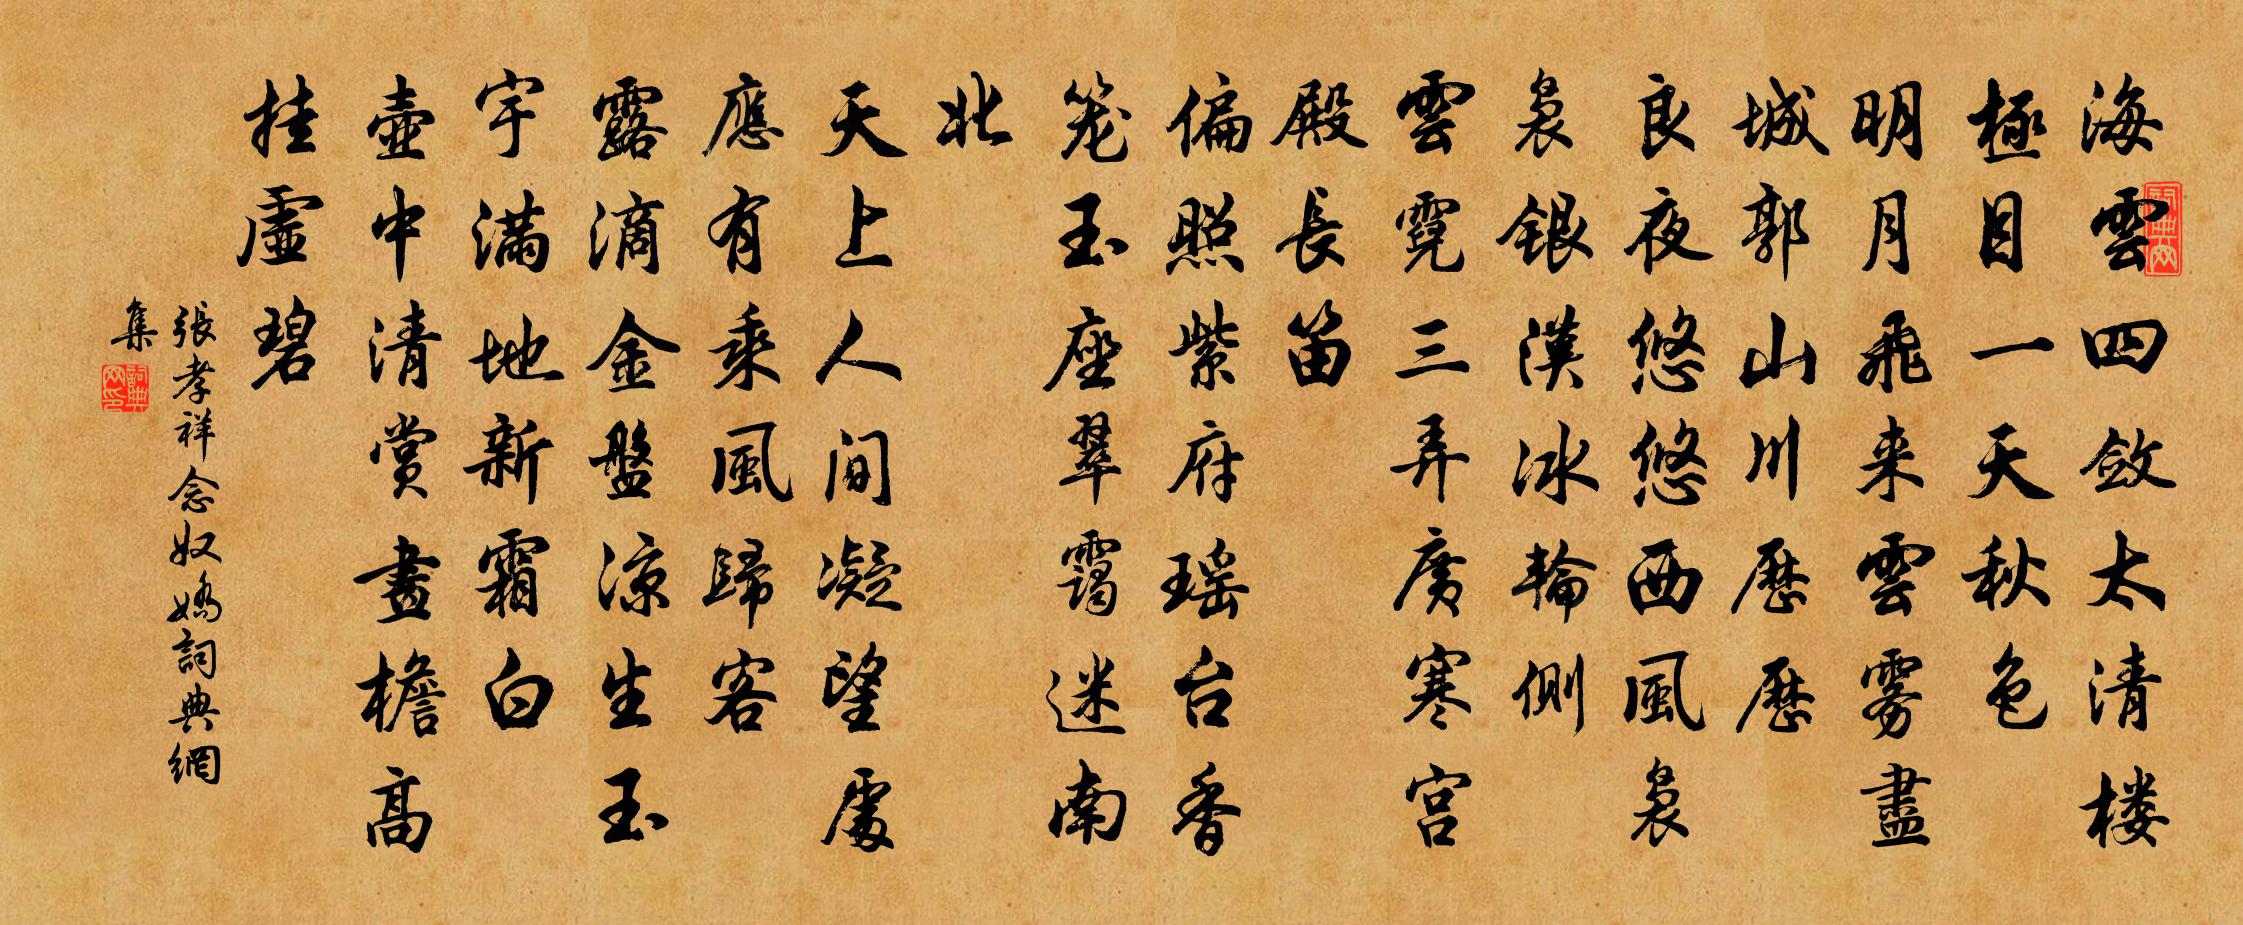 海雲四斂太清楼
極目一天秋色
明月飛来雲雾盡
城郭山川歷歷
良夜悠悠西風袅
袅銀漢冰輪側
雲霓三弄廣寒宫
殿長笛
偏照紫府瑶台香
笼玉座翠靄迷南
北
天上人间凝望處
應有乘風歸客
露滴金盤涼生玉
宇满地新霜白
壺中清赏畫檐高
挂虚碧
張孝祥念奴嬌詞典網
集
詞典网
詞典网印